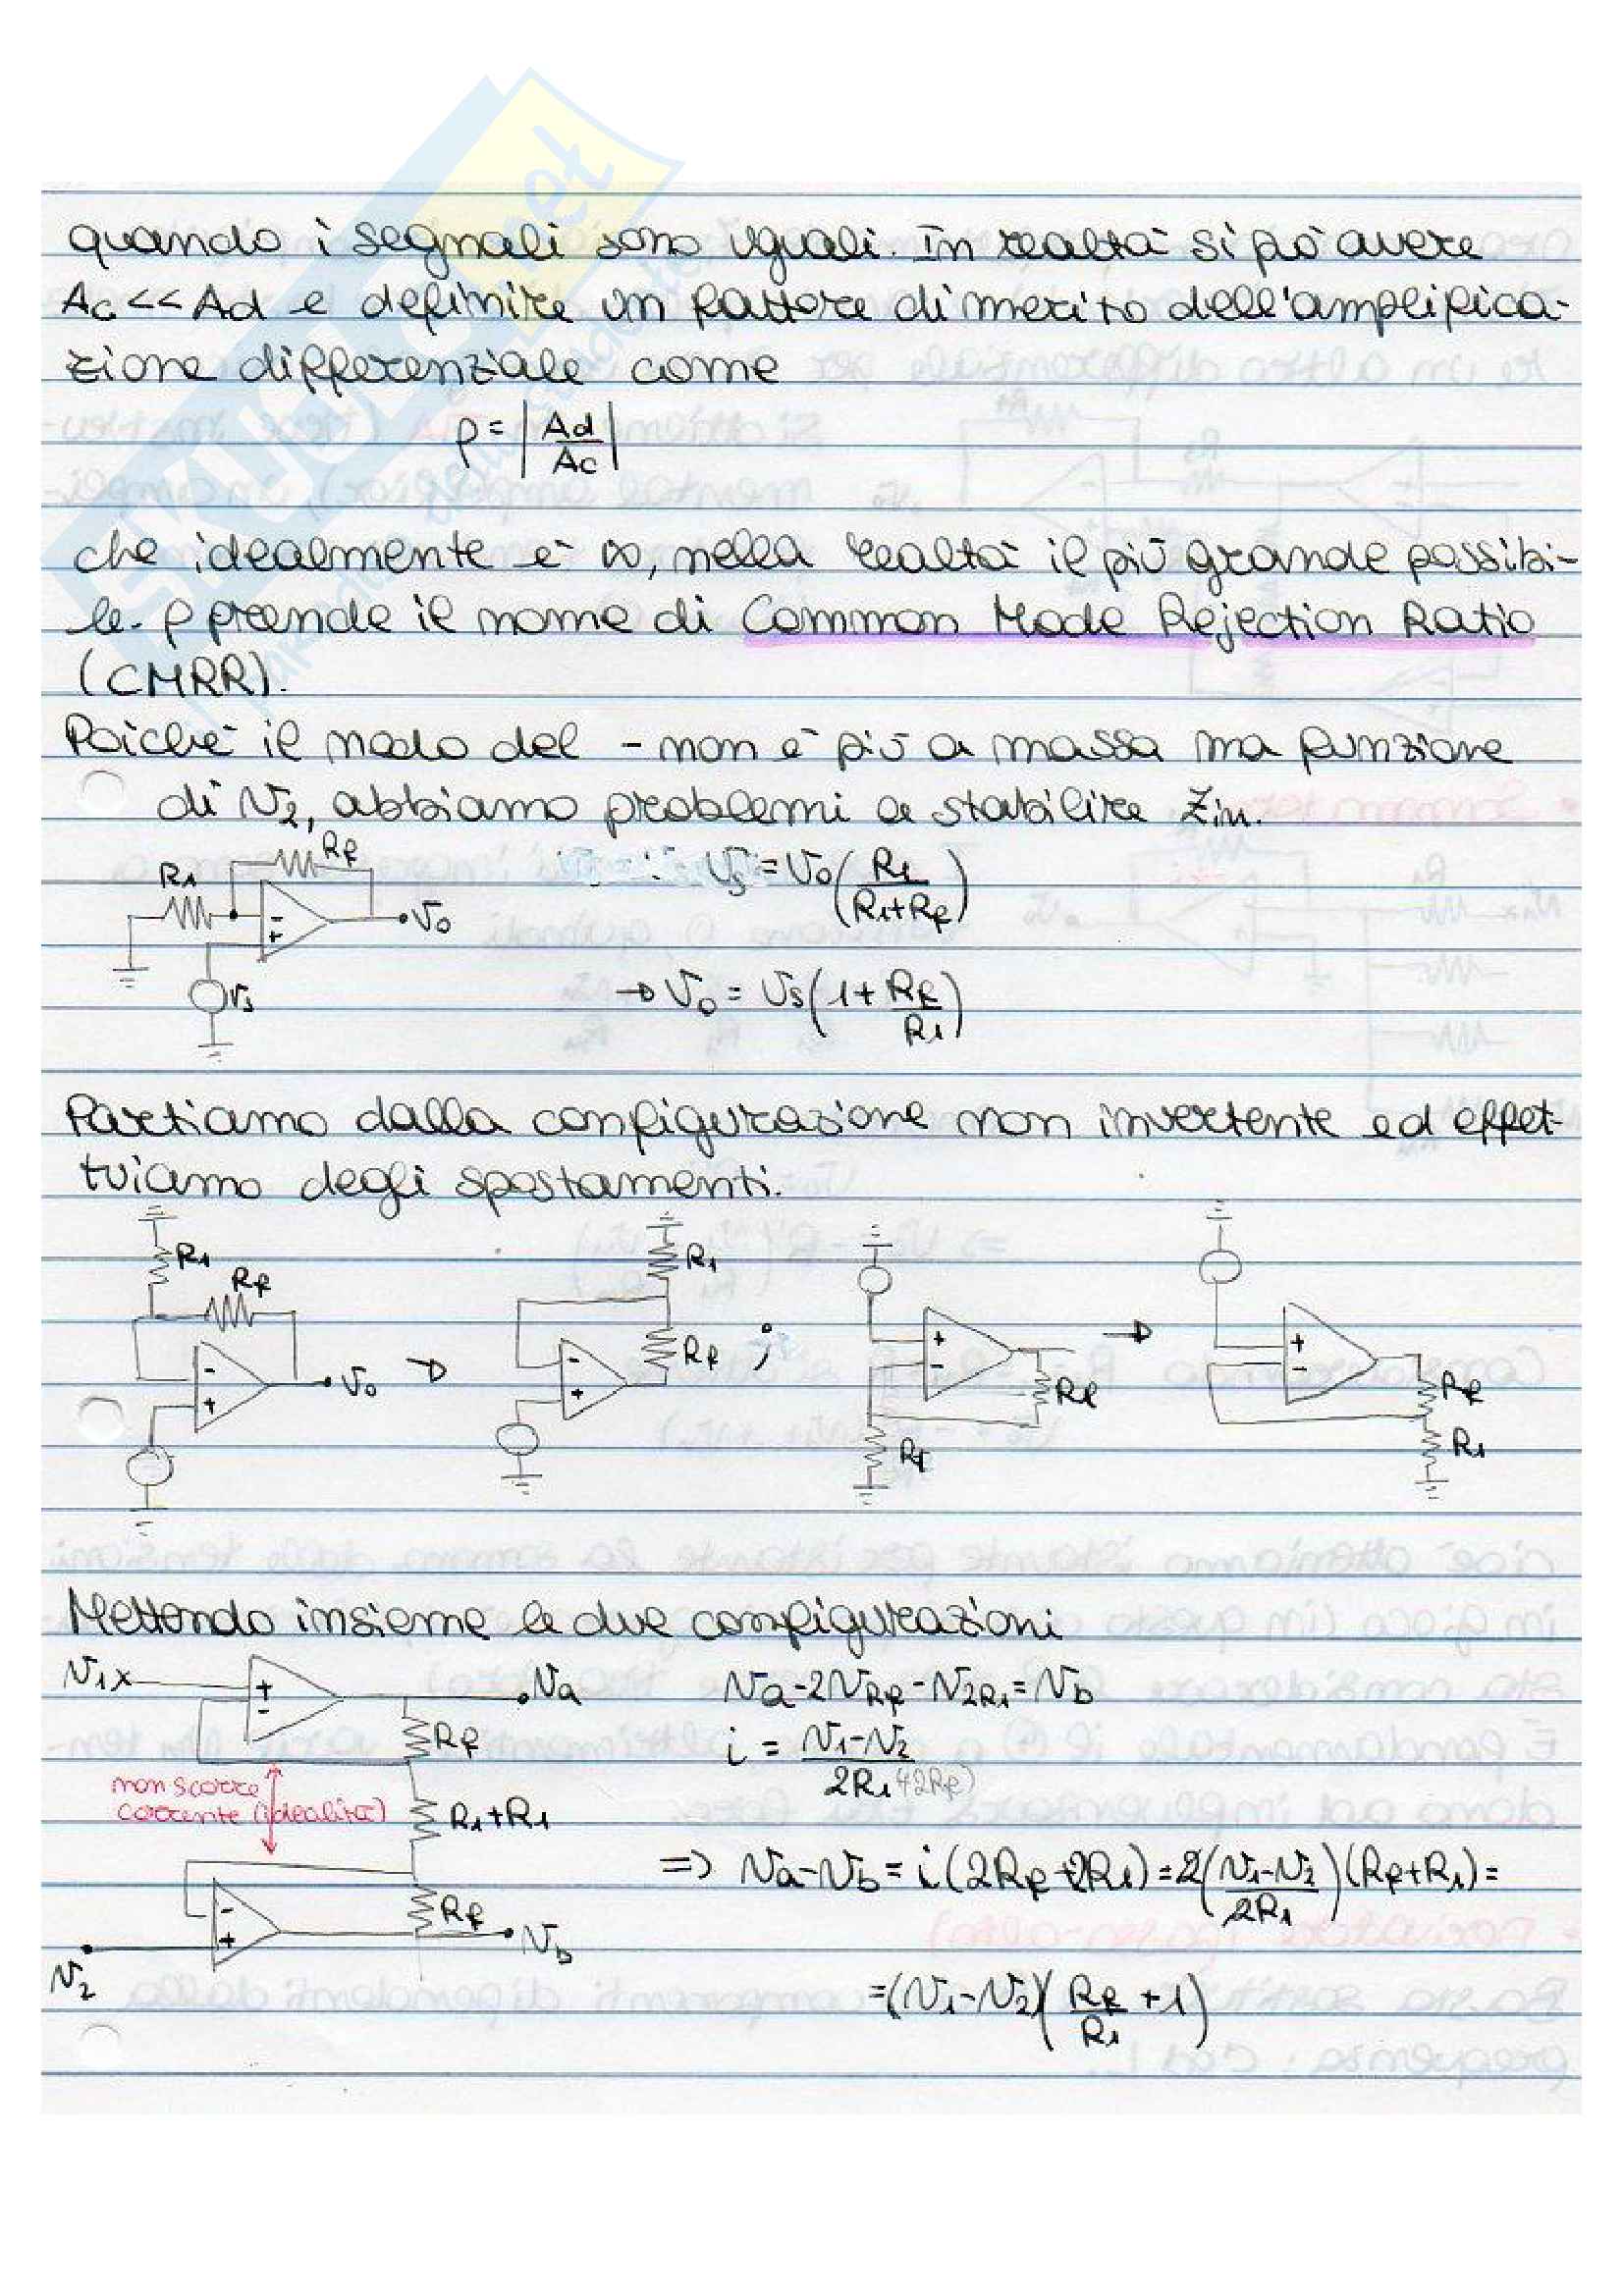 quando i segnali sono uguali. In realtà si può avere
Ac << Ad e definire un fattore di merito dell'amplifica-
zione differenziale come
ρ = |Ad/Ac|
che idealmente è ∞, nella realtà il più grande possibi-
le. ρ prende il nome di Common Mode Rejection Ratio
(CMRR).
Poiché il nodo del - non è più a massa ma funzione
di V2, abbiamo problemi a stabilire Zin.
R1 Rf Vo Vs
Vs = Vo (R1/(R1+Rf))
→ Vo = Vs (1 + Rf/R1)
Partiamo dalla configurazione non invertente ed effet-
tuiamo degli spostamenti.
R1 Rf - + Vo → R1 Rf - + ; + - Rf R1 → + - Rf R1
Mettendo insieme le due configurazioni
V1x + - Va
Va - 2VRf - V2R1 = Vb
Rf
i = (V1-V2)/2R1
non scorre
corrente (idealità)
R1+R1
⇒ Va - Vb = i (2Rf + 2R1) = 2((V1-V2)/2R1)(Rf+R1) =
- + Rf Vb
V2
= (V1-V2)(Rf/R1 + 1)
SKUOLA.net